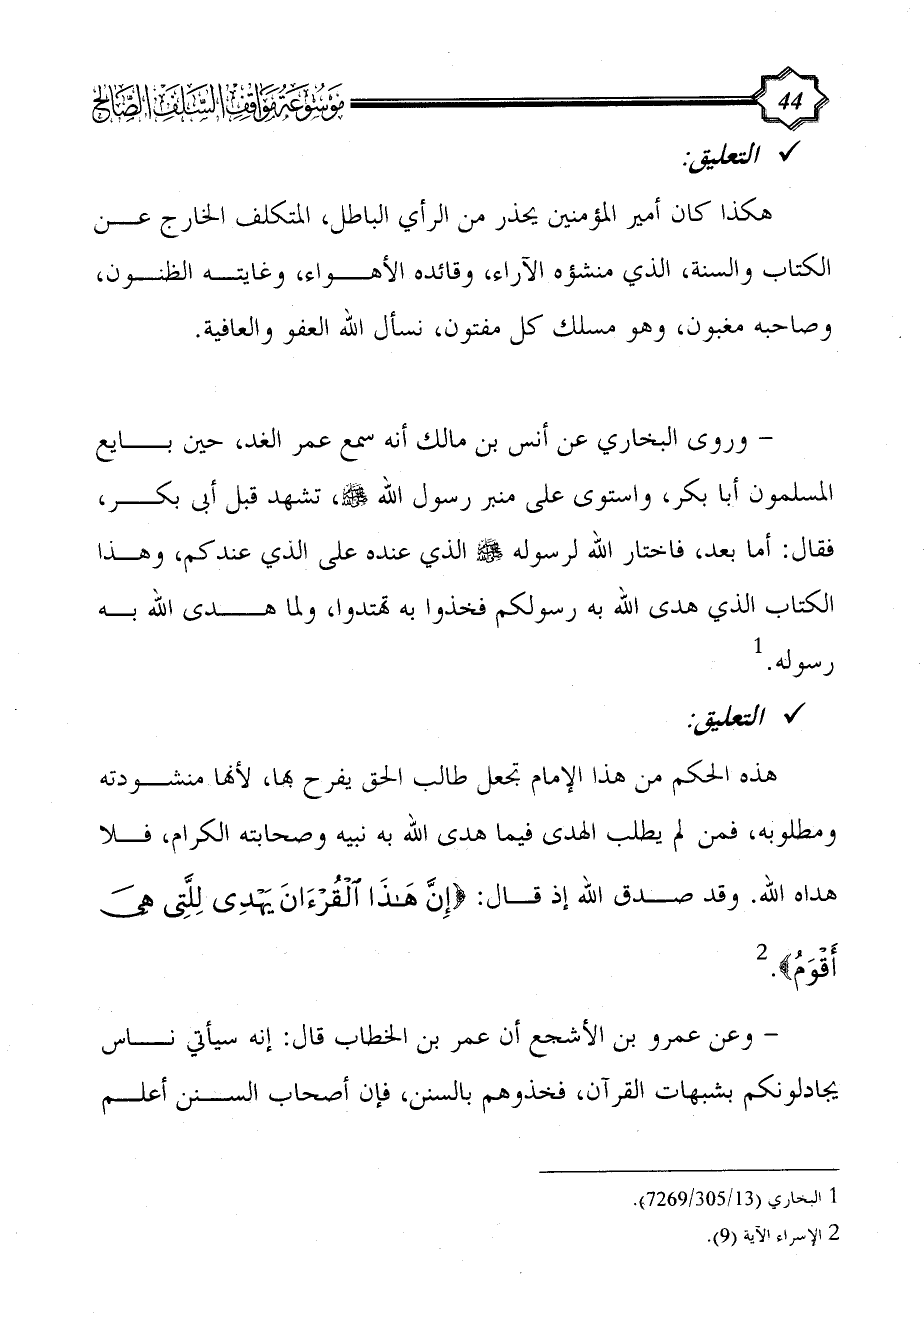 44 موسوعة مواقف السلف الصالح
✓ التعليق:
هكذا كان أمير المؤمنين يحذر من الرأي الباطل، المتكلف الخارج عن
الكتاب والسنة، الذي منشؤه الآراء، وقائده الأهواء، وغايته الظنون،
وصاحبه مغبون، وهو مسلك كل مفتون، نسأل الله العفو والعافية.
- وروى البخاري عن أنس بن مالك أنه سمع عمر الغد، حين بايع
المسلمون أبا بكر، واستوى على منبر رسول الله ﷺ، تشهد قبل أبي بكر،
فقال: أما بعد، فاختار الله لرسوله ﷺ الذي عنده على الذي عندكم، وهذا
الكتاب الذي هدى الله به رسولكم فخذوا به تهتدوا، ولما هدى الله به
رسوله.1
✓ التعليق:
هذه الحكم من هذا الإمام تجعل طالب الحق يفرح بها، لأنها منشودته
ومطلوبه، فمن لم يطلب الهدى فيما هدى الله به نبيه وصحابته الكرام، فلا
هداه الله. وقد صدق الله إذ قال: ﴿إِنَّ هَٰذَا ٱلْقُرْءَانَ يَهْدِى لِلَّتِى هِىَ
أَقْوَمُ﴾.2
- وعن عمرو بن الأشجع أن عمر بن الخطاب قال: إنه سيأتي ناس
يجادلونكم بشبهات القرآن، فخذوهم بالسنن، فإن أصحاب السنن أعلم
1 البخاري (7269/305/13).
2 الإسراء الآية (9).